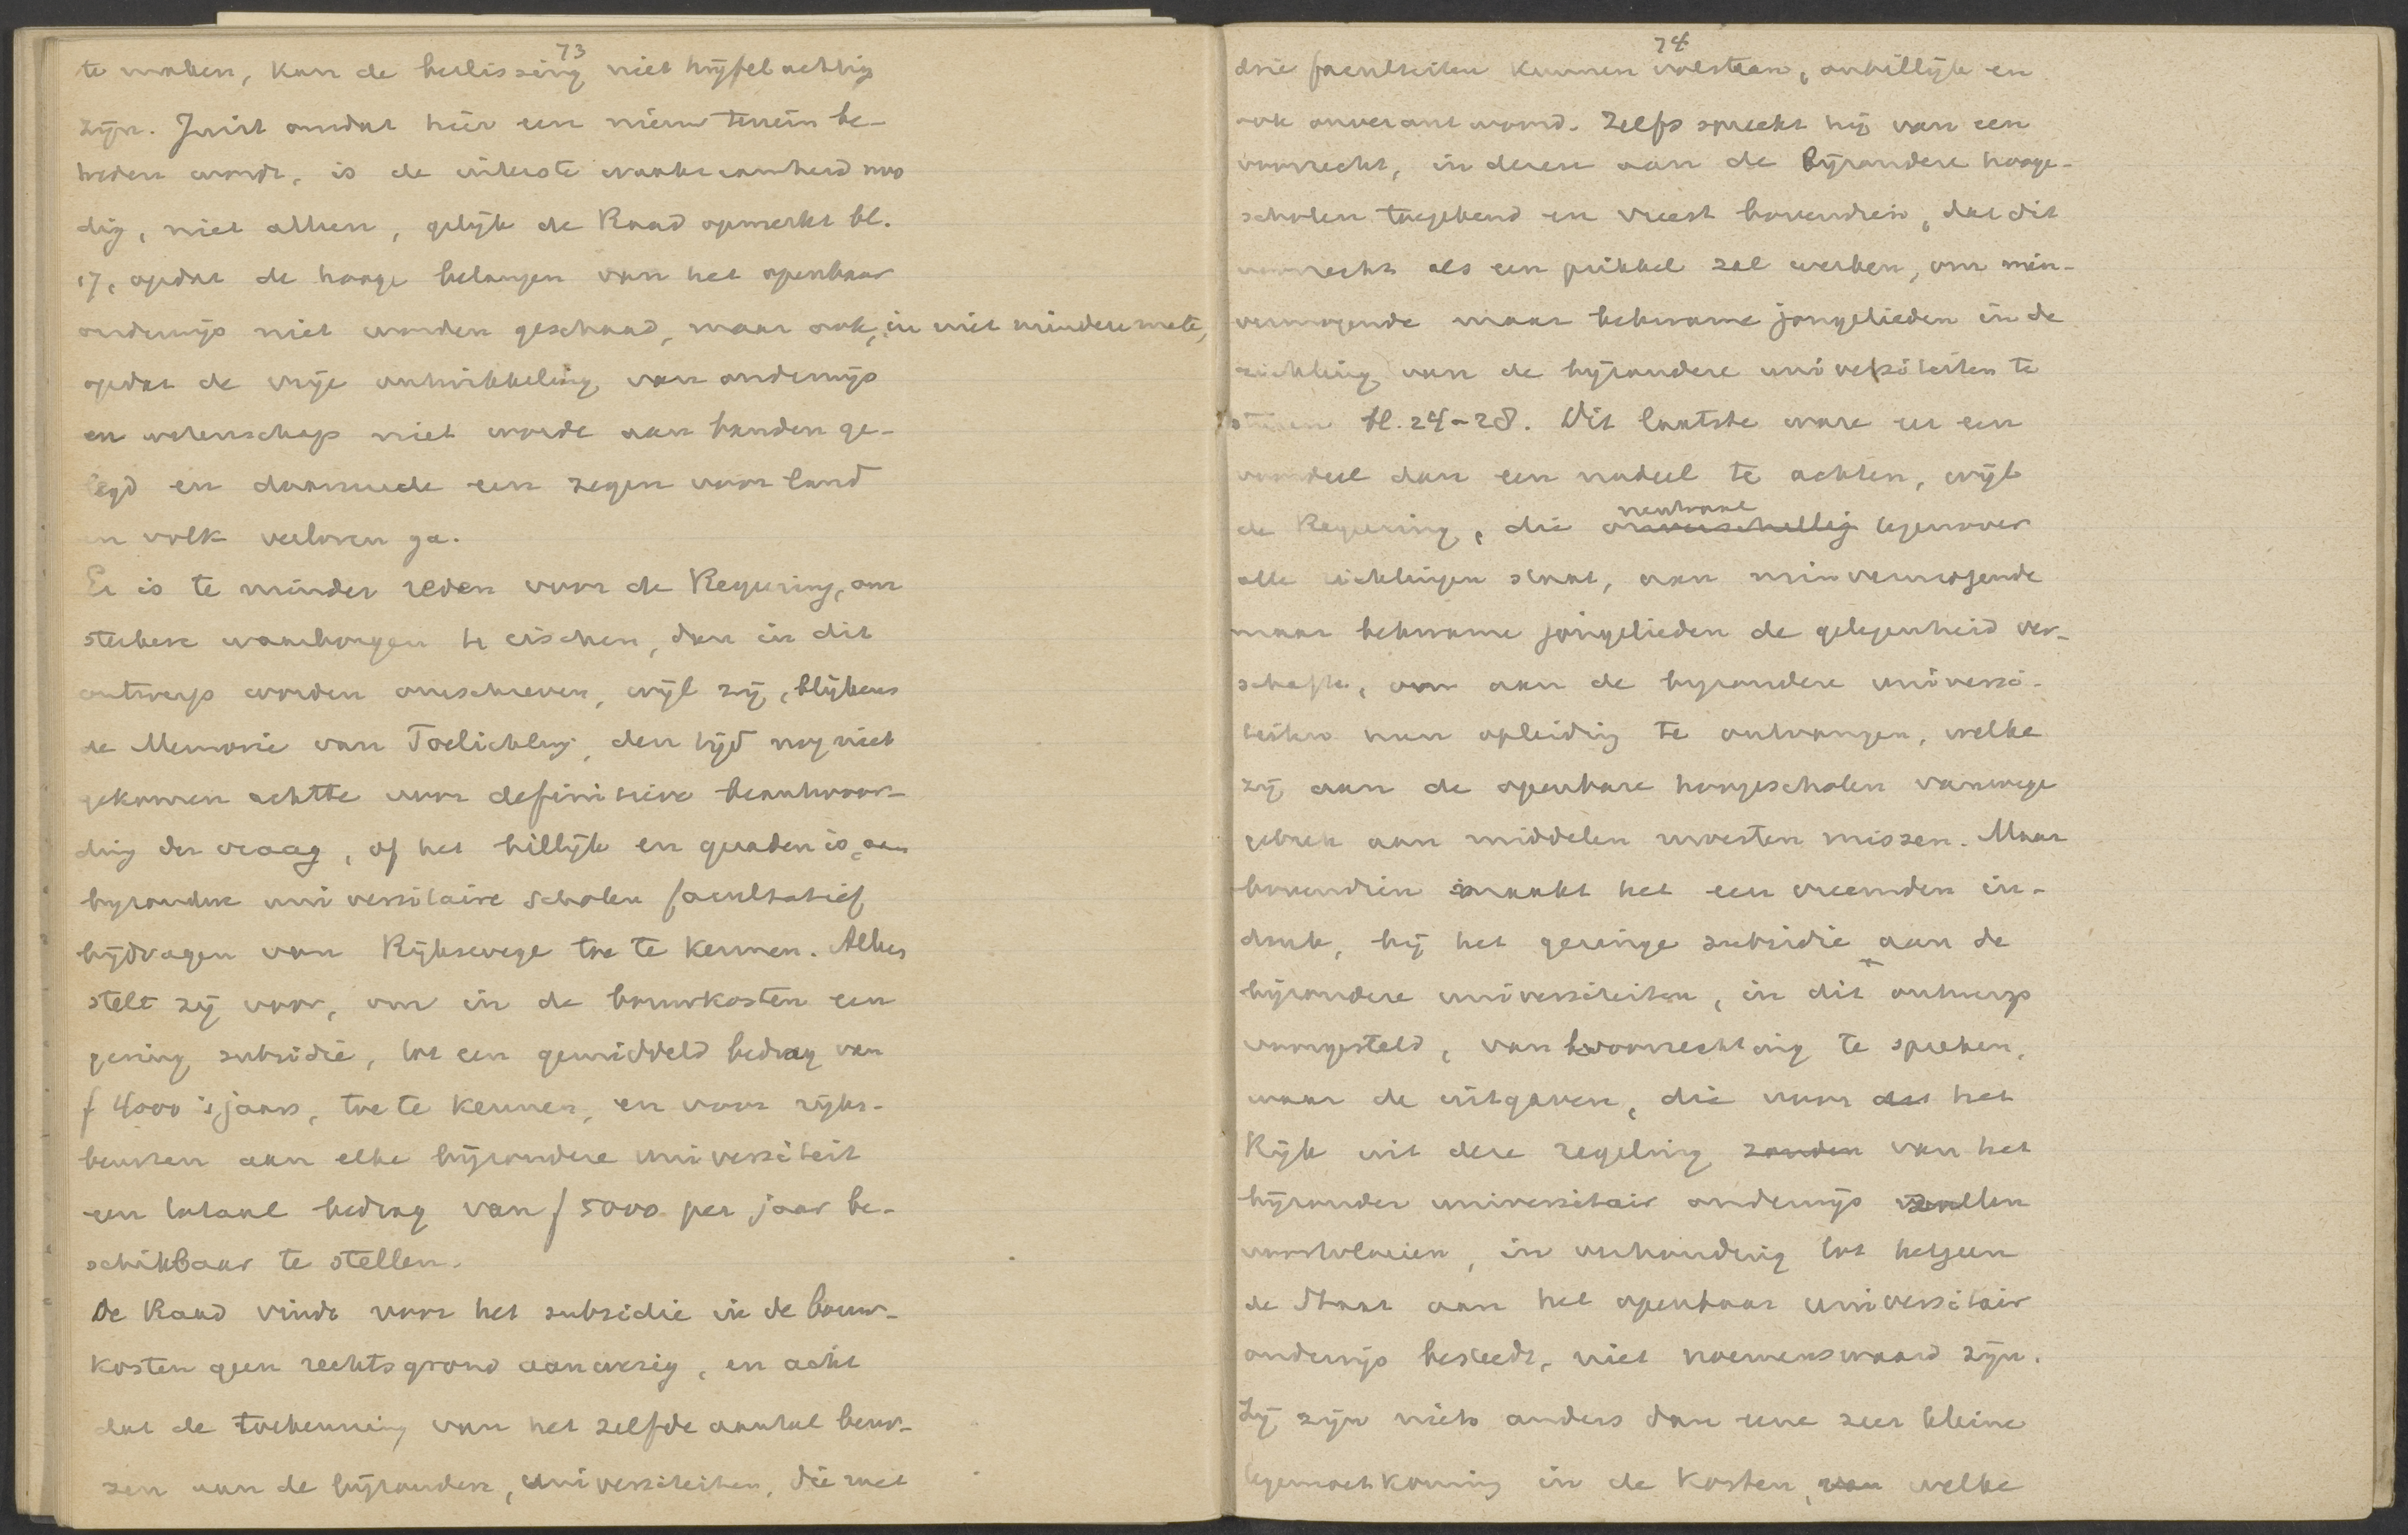 73
te maken, kan de beslissing niet twijfelachtig
zijn. Juist omdat hier een nieuw terrein be-
treden wordt, is de uiterste waakzaamheid noo
dig, niet alleen, gelijk de Raad opmerkt bl.
17, opdat de hooge belangen van het openbaar
onderwijs niet worden geschaad, maar ook, in niet mindere mate,
opdat de vrije ontwikkeling van onderwijs
en wetenschap niet worde aan banden ge-
legd en daarmede een zegen voor land
en volk verloren ga.
Er is te minder reden voor de Regering, om
sterkere waarborgen te eischen, dan in dit
ontwerp worden omschreven, wijl zij, blijkens
de Memorie van Toelichting, den tijd nog niet
gekomen achtte voor definitieve beantwoor-
ding der vraag, of het billijk en geraden is, aan
bijzondere universitaire scholen facultatief
bijdragen van Rijkswege toe te kennen. Alles
stelt zij voor, om in de bouwkosten een
gering subsidie, tot een gemiddeld bedrag van
f 4000 's jaars, toe te kennen, en voor rijks-
beurzen aan elke bijzondere universiteit
een totaal bedrag van f 5000 per jaar be-
schikbaar te stellen.
De Raad vindt voor het subsidie in de bouw-
kosten geen rechtsgrond aanwezig, en acht
dat de toekenning van het zelfde aantal beur-
zen aan de bijzondere, universiteiten, die met
74
drie faculteiten kunnen volstaan, onbillijk en
ook onverantwoord. Zelfs spreekt hij van een
voorrecht, in dezen aan de bijzondere hooge-
scholen toegekend en vreest bovendien, dat dit
voorrecht als een prikkel zal werken, om min-
vermogende maar bekwame jongelieden in de
richting van de bijzondere universiteiten te
sturen bl. 24-28. Dit laatste ware eer een
voordeel dan een nadeel te achten, wijl
neutraal
de Regeering, die onverschellig tegenover
alle richtingen staat, aan minvermogende
maar bekwame jongelieden de gelegenheid ver-
schafte, om aan de bijzondere universi-
teiten een opleiding te ontvangen, welke
zij aan de openbare hoogescholen vanwege
gebrek aan middelen moesten missen. Maar
bovendien maakt het een vreemden in-
druk, bij het geringe subsidie aan de
bijzondere universiteiten, in dit ontwerp
voorgesteld, van bevoorrechting te spreken,
waar de uitgaven, die voor het
Rijk uit deze regeling zouden van het
bijzonder universitair onderwijs zullen
voortvloeien, in verhouding tot hetgeen
de Staat aan het openbaar universitair
onderwijs besteedt, niet noemenswaard zijn.
Zij zijn niets anders dan eene zeer kleine
tegemoetkoming in de kosten, van welke